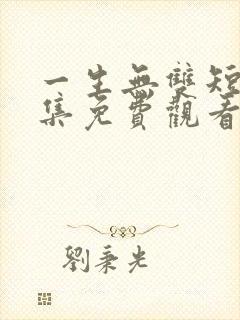 一生無雙短
集免費觀看
劉秉光